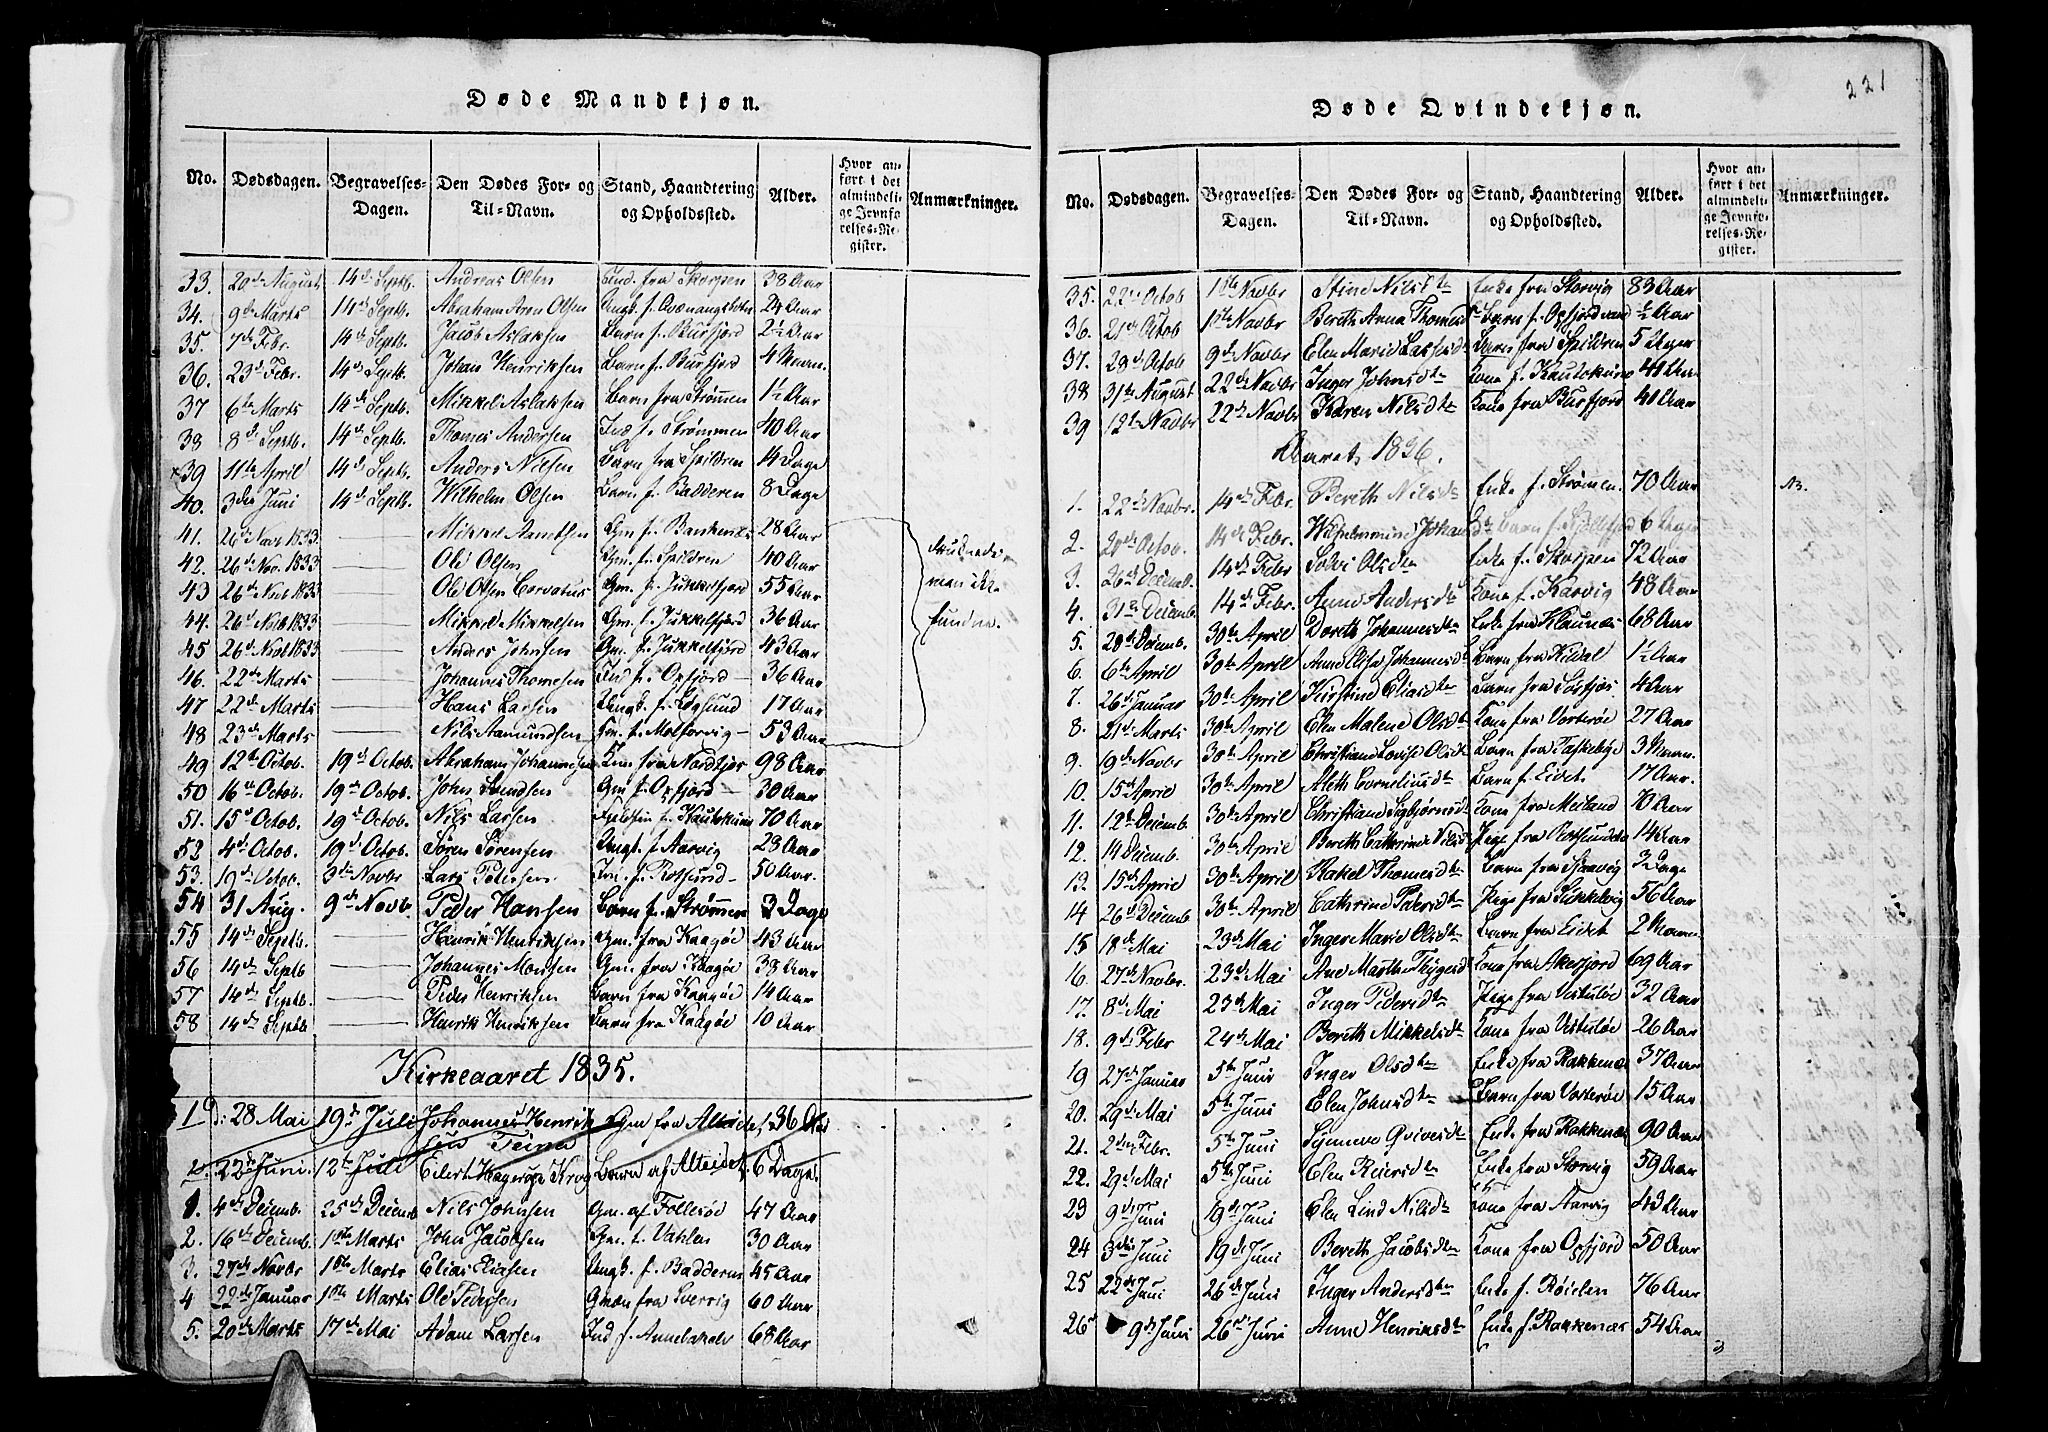 Døde Mandkjøn.
No. Dødsdagen. Begravelses-Dagen. Den Dødes For- og Til-Navn. Stand, Haandtering og Opholdssted. Alder. Hvor anført i det almindelige Jevnførelses-Register. Anmærkninger.
33. 20de August 14de Septb. Andreas Olsen Ind. fra Skorpen 38 Aar
34. 9de Marts 14de Septb. Abraham Aron Olsen Ungk. f. Qvænangsbotn 24 Aar
35. 7de Febr. 14de Septb. Jacob Aslaksen Barn f. Burfjord 2½ Aar
36. 23de Febr. 14de Septb. Johan Henriksen Barn f. Burfjord 4 Maan.
37 6te Marts 14de Septb. Mikkel Aslaksen Barn fra Strømmen 1½ Aar
38 8de Septb. 14de Septb. Thomas Andersen Ind f. Strømmen 40 Aar
×39 11te April 14de Septb. Anders Nilsen Barn fra Spildren 14 Dage
40. 3die Juni 14de Septb. Wilhelm Olsen Barn f. Badderen 8 Dage
41. 26de Nov. 1833. — Mikkel Amundsen Gm f. Bankenæs 28 Aar
42. 26de Nov. 1833 — Ole Olsen Gm. f. Spildren 40 Aar
43 26de Novb 1833 — Ole Olsen Corvatus Gm. f. Jukkelfjord 55 Aar
44. 26d Novb 1833 — Mikkel Mikkelsen Gm. f. Jukkelfjord 36 Aar
45 26de Novb 1833 — Anders Johnsen Gm. f. Jukkelfjord 43 Aar
46. 22de Marts — Johannes Thomesen Ind f. Opfjord — 36 Aar
47 22de Marts — Hans Larsen Ungk. f. Løgsund 17 Aar
48 23de Marts — Nils Aamundsen Gm. f. Molforvig — 53 Aar
druknede, man ikke fundne.
49 12te Octob. 19de Octob. Abraham Johannesen fra Nordfjos 98 Aar
50 16de Octob. 19de Octob. John Gm f. Opfjord — 30 Aar
51. 15d Octob. 19d Octob. Nils Larsen Fjeldfin f. Kautokeino 70 Aar
52 4de Octob. 19de Octob. Søren Sørensen Ungk. f. Aarvig 23 Aar
53. 19de Octob. 3die Novbr Lars Pedersen f. Rotsund — 50 Aar.
54 31 Aug. 9de Novb. Peder Hansen Barn f. Strømmen 3 Dage
55 14de Septb. — Henrik Henriksen Gm. fra Kaagøe 43 Aar
56 14de Septb — Johannes Monsen Gm. fra Kaagøe 38 Aar
57 14de Septb. — Peder Henriksen Barn fra Kaagøe 14 Aar
58 14de Septb — Henrik Henriksen Barn fra Kaagøe 10 Aar
Kirkeaaret 1835.
1 d: 28 Mai 19de Juli Johannes Henrik Gm fra Alteidet 36 Aar
2. 22de Juni. 12te Juli Eilert Hagerup Krog Barn af Alteidet 6 Dage.
1. 4de Decemb. 25de Decemb Nils Johnsen Gm. af Follesøe 47 Aar
2. 16de Decemb. 1ste Marts John Jacobsen Gm. f. Vahlen 30 Aar
3. 27de Novbr 1ste Marts Elias Eliasen Ungk. f. Badderen 45 Aar
4 22de Januar 1ste Marts Ole Pedersen Gman fra Sverrig 60 Aar
5. 20de Marts 17de Mai Adam Larsen Ind f. 68 Aar
221
Døde Qvindekjøn.
No. Dødsdagen. Begravelses-Dagen. Den Dødes For- og Til-Navn. Stand, Haandtering og Opholdssted. Alder. Hvor anført i det almindelige Jevnførelses-Register. Anmærkninger.
35. 22de Octob 1ste Novbr Stine Nilsdtr Enke fra Storvig 83 Aar
36. 21de Octob 1ste Novbr Bereth Anna Thomesd Barn f. Opfjordvand ½ Aar
37. 28de Octob 9de Novbr Elen Marie Larsend Barn fra Spildren 5 Uger
38 31te August 22de Novbr Inger Johnsdtr Kona f. Kautokeino 41 Aar
39 12te Novbr 22de Novbr Karen Nilsdtr Kona fra Burfjord 40 Aar
Aaret 1836.
1. 22de Novbr. 14de Febr. Bereth Nilsdtr Enke f. Strømen 70 Aar NB.
2. 20de Octob. 14de Febr. Wilhelmine Johansdtr Barn f. 6 Uger
3. 26de Decemb. 14de Febr Solvi Olsdtr Enke f. Skorpen 72 Aar
4. 31te Decemb. 14de Febr. Anne Andersdtr Kona f. Karvig 48 Aar
5. 28de Decemb. 30te April Doreth Johannesdtr Enke fra Klaunæs 68 Aar
6. 6te April 30te April Anne Elisa Johannesdtr Barn fra Kildal 1½ Aar
7. 26de Januar 30te April Kirstine Eliasdtr Barn fra Sørfjos 4 Aar
8. 21de Marts 30te April Elen Malene Olsdtr Kona fra Vorterøe 27 Aar
9. 19de Novbr 30te April Christiane Lovise Olsd Barn fra Taskebye 3 Maan.
10. 15de April 30te April Aleth Corneliusdtr Barn f. Eidet 17 Aar.
11. 12te Decemb. 30te April Christiane Sigbjørnsdtr Kona fra Meiland 70 Aar
12. 14 Decemb. 30te April Bereth Cathrine Nilsd Pige fra Rotsundelv 14 Aar
13. 15de April 30te April Rakel Thomesdtr Barn fra 3 Dage
14 26de Decemb 30te April Cathrine Pedersdtr Pige fra Sikkelvig 56 Aar
15 18de Mai 23de Mai Inger Marie Olsdtr Barn fra Eidet 2 Maan
16. 27de Novbr. 23de Mai Ane Marthe Thygesd Kona fra Akerfjord 69 Aar
17. 8de Mai 23de Mai Inger Pedersdtr Pige fra Vorterøe 32 Aar
18. 9de Febr 24de Mai Bereth Mikkelsdtr Kona fra Vorterøe 26 Aar
19 27de Januar 5te Juni Inger Olsdtr Enke fra Rakkenæs 37 Aar
20. 29de Mai 5te Juni Elen Johnsdtr Barn fra Vorterøe 15 Aar
21. 2den Febr. 5te Juni Synneve Qvivesdtr Enke fra Rakkenæs 90 Aar
22. 29de Mai 5te Juni Elen Reiersdtr Enke fra Storvig 59 Aar
23 9de Juni 19de Juni Elen Lind Nilsdtr Kona fra Aarvig 43 Aar
24 3die Juni 19de Juni Bereth Jacobsdtr Kona fra Opfjord 50 Aar
25 22de Juni 26de Juni Inger Andersdtr Enke f. Røielen 76 Aar
26 9de Juni 26de Juni Anne Henriksdtr Enke f. Rakkenæs 54 Aar